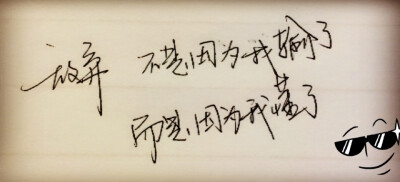 放弃 不是因为我输了
而是因为我懂了